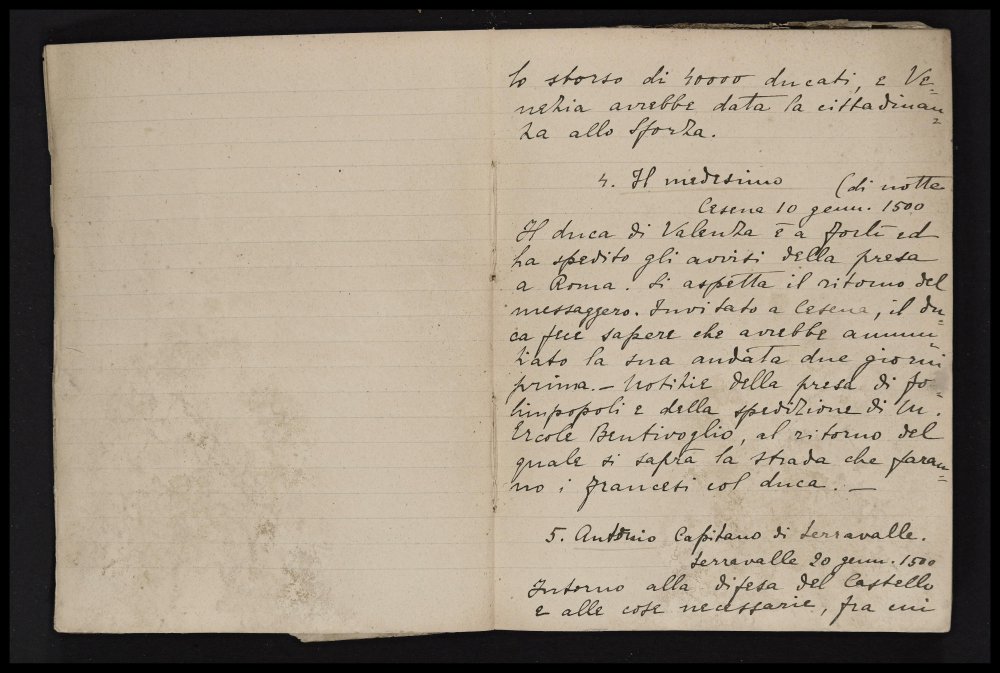 lo storso di 40000 ducati, e Ve=
nezia avrebbe data la cittadinan=
za allo Sforza.
4. Il medesimo (di notte
Cesena 10 genn. 1500
Il duca di Valenza è a Forlì ed
ha spedito gli avvisi della presa
a Roma. Si aspetta il ritorno del
messaggero. Invitato a Cesena, il du=
ca fece sapere che avrebbe annun=
ziato la sua andata due giorni
prima. – Notizie della presa di Fo=
limpopoli e della spedizione di
Ercole Bentivoglio, al ritorno del
quale si saprà la strada che faran=
no i francesi col duca. –
5. Antonio Capitano di Serravalle.
Serravalle 20 genn. 1500
Intorno alla difesa del Castello
e alle cose necessarie, fra cui